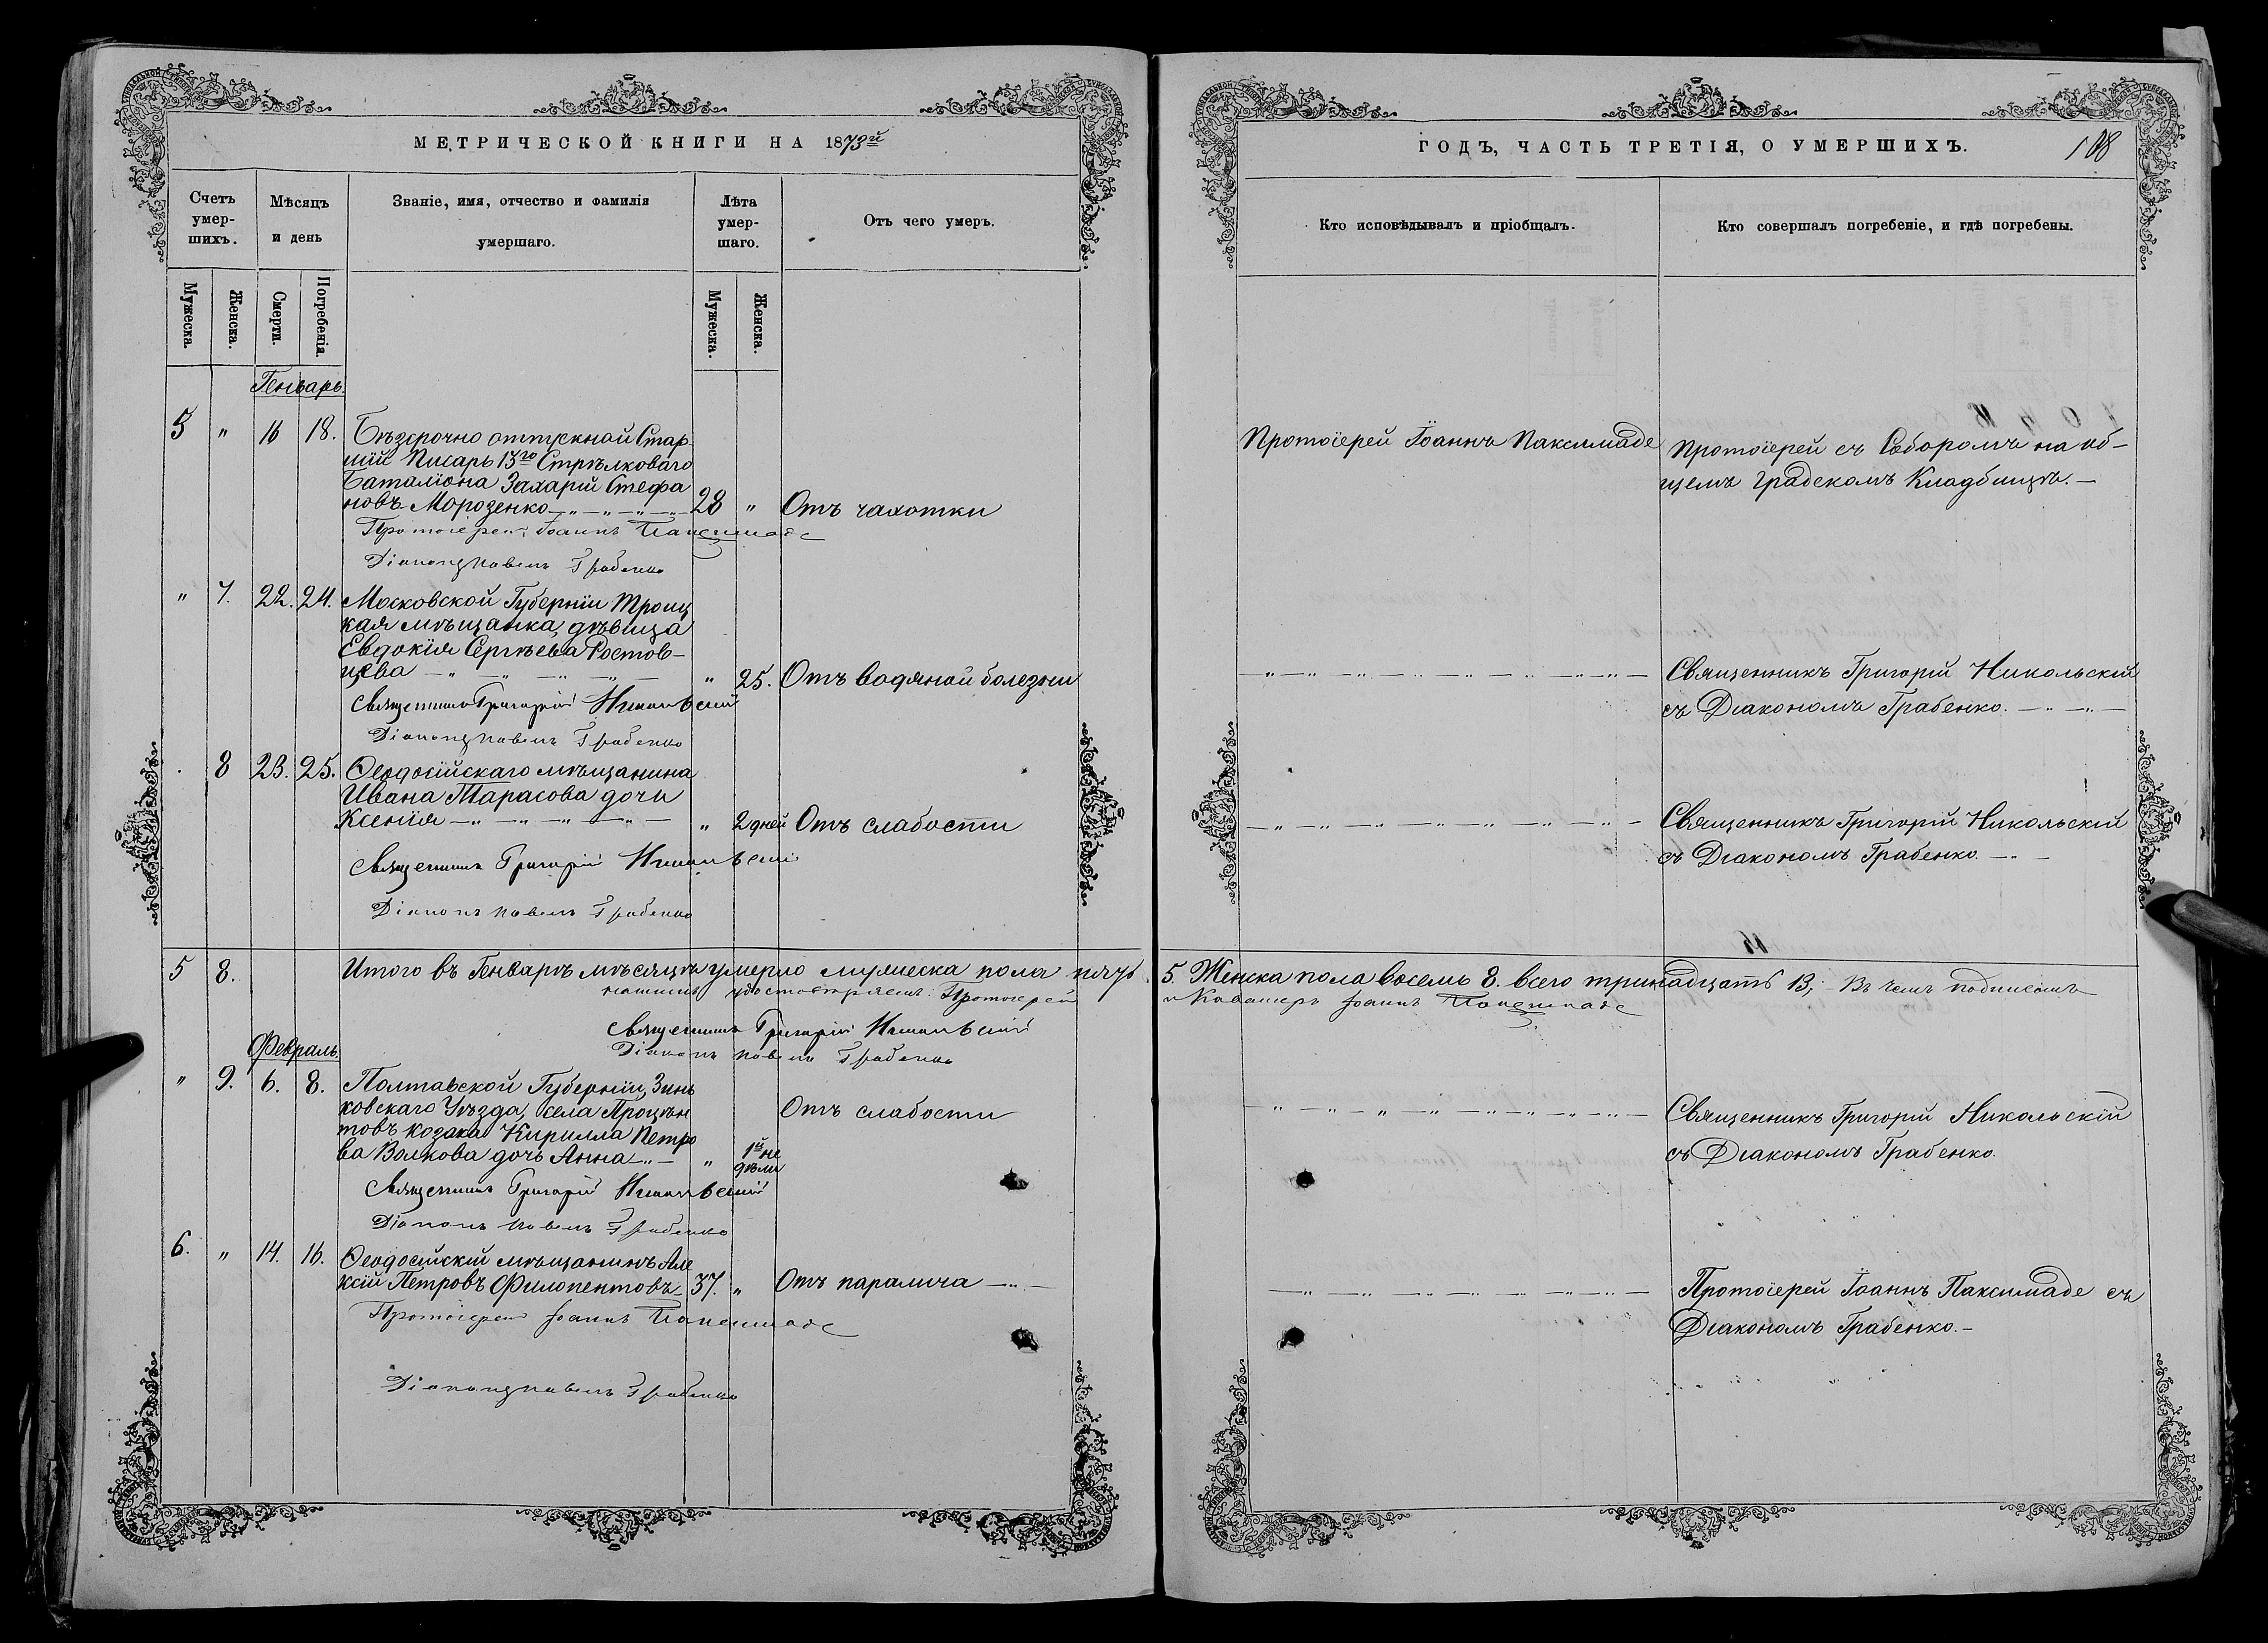 МЕТРИЧЕСКОЙ КНИГИ НА 1873й
Счетъ умер-шихъ.
Мѣсяцъ и день
Званіе, имя, отчество и фамилія умершаго.
Лѣта умер-шаго.
Отъ чего умеръ.
Мужеска.
Женска.
Смерти.
Погребенія.
Мужеска.
Женска.
Генварь.
5 " 16 18. Безсрочно отпускной Стар-
шій Писарь 13го Стрѣлковаго
Баталіона Захарій Стефа
новъ Морозенко 28 " Отъ чахотки
Протоіерей Іоаннъ Паксимаде
Діаконъ Павелъ Грабенко
" 7. 22. 24. Московской Губерніи Троиц
кая мѣщанка, дѣвица
Евдокія Сергѣева Ростов-
цева " 25. Отъ водяной болезни
Священникъ Григорій Никольскій
Діаконъ Павелъ Грабенко
8 23. 25. Ѳеодосійскаго мѣщанина
Ивана Тарасова дочь
Ксенія " 2 дней Отъ слабости
Священникъ Григорій Никольскій
Діаконъ Павелъ Грабенко
5 8. Итого въ Генварѣ мѣсяцѣ умерло мужеска пола пять
нашимъ удостовѣряемъ: Протоіерей
Священникъ Григорій Никольскій
Діаконъ Павелъ Грабенко
Февраль
" 9. 6. 8. Полтавской Губерніи, Зинь
ковскаго Уѣзда, села Процѣн
товъ козака Кирилла Петро
ва Волкова дочь Анна " 1й не
дѣли
Отъ слабости
Священникъ Григорій Никольскій
Діаконъ Павелъ Грабенко
6. " 14. 16. Ѳеодосійскій мѣщанинъ Але
ксій Петровъ Филопентовъ 37. " Отъ паралича
Протоіерей Іоаннъ Паксимаде
Діаконъ Павелъ Грабенко
ГОДЪ, ЧАСТЬ ТРЕТІЯ, О УМЕРШИХЪ.
108
Кто исповѣдывалъ и пріобщалъ.
Кто совершалъ погребеніе, и гдѣ погребены.
Протоіерей Іоаннъ Паксимаде
Протоіерей съ Соборомъ на об-
щемъ градскомъ Кладбищѣ.
Священникъ Григорій Никольскій
съ Діакономъ Грабенко.
Священникъ Григорій Никольскій
съ Діакономъ Грабенко.
5. Женска пола восемь 8. всего тринадцать 13; Въ чемъ подписомъ
и Кавалеръ Іоаннъ Паксимаде
Священникъ Григорій Никольскій
съ Діакономъ Грабенко.
Протоіерей Іоаннъ Паксимаде съ
Діакономъ Грабенко.